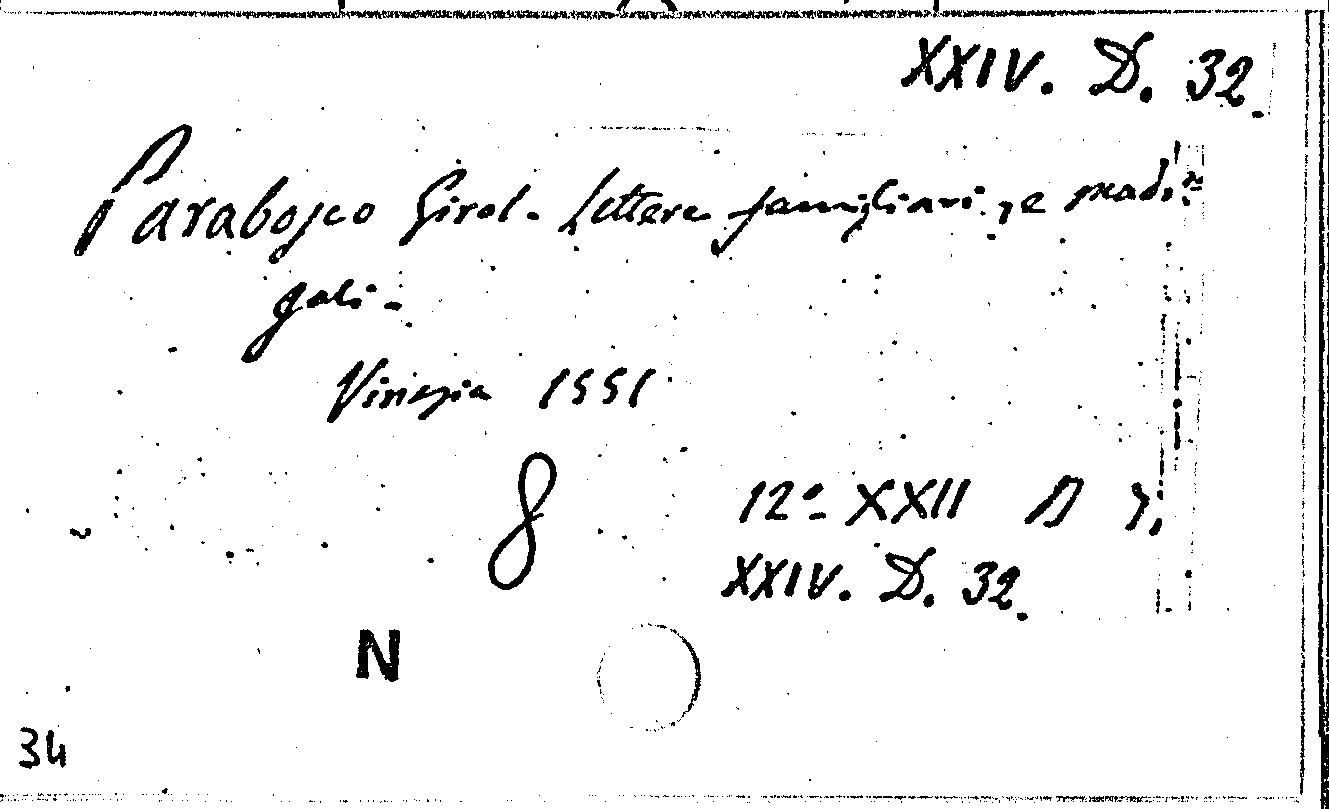 XXIV. D. 32.
Parabosco Girol. Lettere famigliari, e madri=
gali -
Vinegia 1551
8
12º XXII D
XXIV. D. 32.
N
34